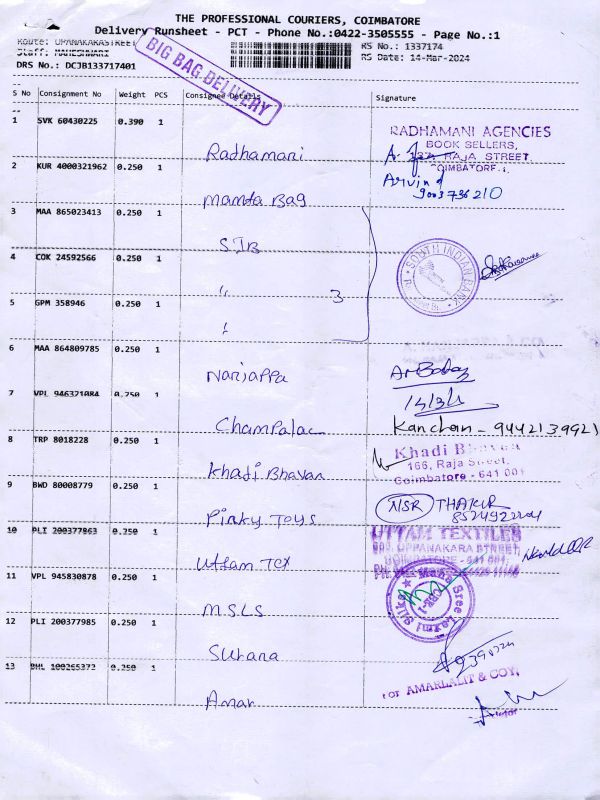 THE PROFESSIONAL COURIERS, COIMBATORE
Delivery Runsheet - PCT - Phone No.:0422-3505555 - Page No.:1
Route: UPANAKARASTREET
Staff: MAHESHWARI
DRS No.: DCJB133717401
RS No.: 1337174
RS Date: 14-Mar-2024
BIG BAG DELIVERY
S No Consignment No Weight PCS Consignee Details Signature
1 SVK 60430225 0.390 1
Radhamani
RADHAMANI AGENCIES
BOOK SELLERS,
RAJA STREET,
COIMBATORE-1.
Arvind
9003736210
2 KUR 4000321962 0.250 1
Mamta Bag
3 MAA 865023413 0.250 1
SIB
SOUTH INDIAN BANK
4 COK 24592566 0.250 1
"
3
5 GPM 358946 0.250 1
6 MAA 864809785 0.250 1
Nanjappa
7 VPL 946321084 0.250 1
Champalac
Kanchan - 9442139921
8 TRP 8018228 0.250 1
Khadi Bhavan
Khadi Bhavan
166, Raja Street,
Coimbatore - 641 001
9 BWD 80008779 0.250 1
Pinky Toys
NSR THAKUR
10 PLI 200377863 0.250 1
Uttam Tex
UTTAM TEXTILES
UPPANAKARA STREET
COIMBATORE - 641 001.
11 VPL 945830878 0.250 1
M.S.L.S
Maha Sree Laxmi Silks
12 PLI 200377985 0.250 1
Surana
13 BHL 100265373 0.250 1
Amar
For AMARLALIT & COY,